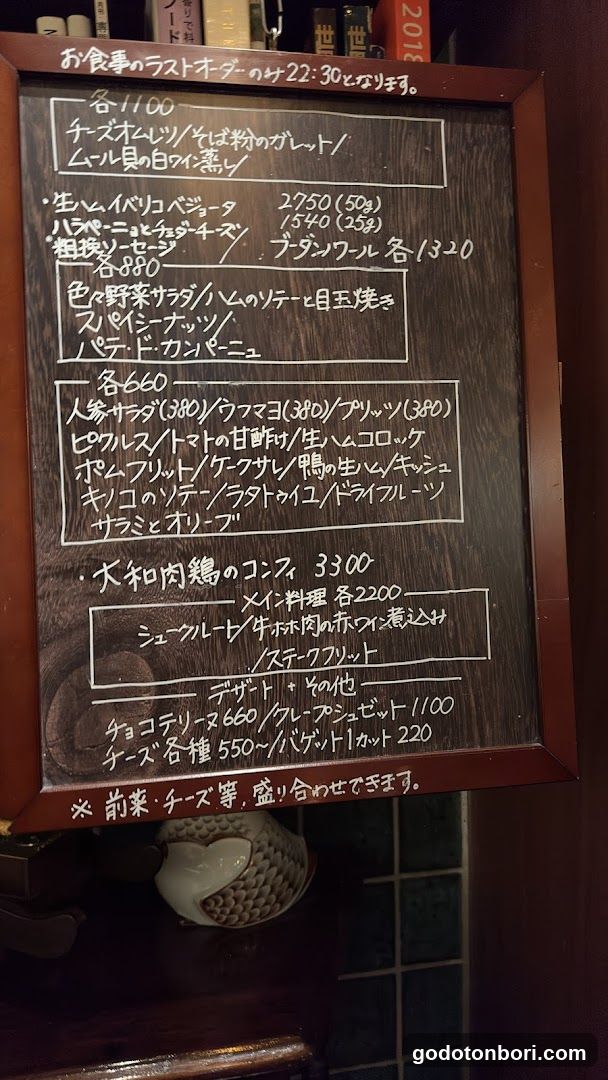 2018
お食事のラストオーダーのみ22:30となります。
各1100
チーズオムレツ/そば粉のガレット/
ムール貝の白ワイン蒸し/
・生ハムイベリコベジョータ 2750(50g)
ハラペーニョとチェダーチーズ/ 1540(25g)
粗挽ソーセージ / ブーダンノワール 各1320
各880
色々野菜サラダ/ハムのソテーと目玉焼き
スパイシーナッツ/
パテ・ド・カンパーニュ
各660
人参サラダ(380)/ウフマヨ(380)/プリッツ(380)
ピクルス/トマトの甘酢け/生ハムコロッケ
ポムフリット/ケークサレ/鴨の生ハム/キッシュ
キノコのソテー/ラタトゥイユ/ドライフルーツ
サラミとオリーブ
・大和肉鶏のコンフィ 3300
メイン料理 各2200
シュークルート/牛ホホ肉の赤ワイン煮込み
/ステークフリット
デザート + その他
チョコテリーヌ660/クレープシュゼット1100
チーズ各種550〜/バゲット1カット220
※ 前菜・チーズ等、盛り合わせできます。
godotonbori.com